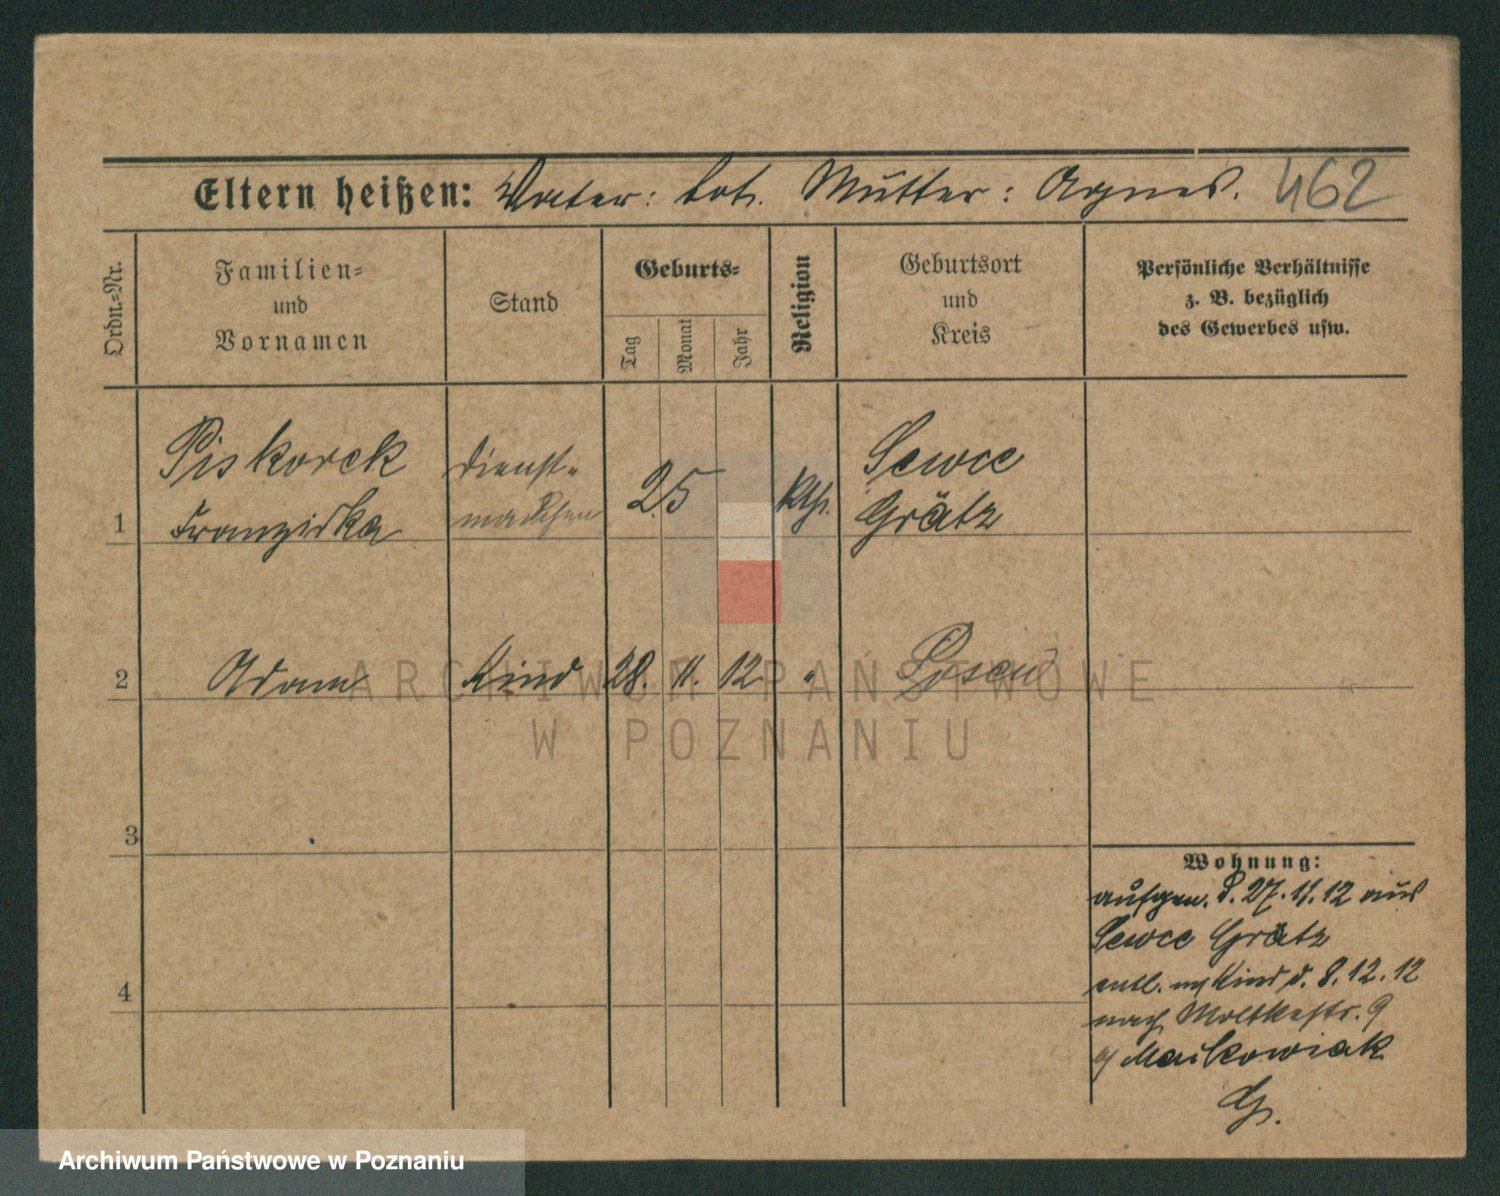 Eltern heißen: Vater: tot. Mutter: Agnes. 462
Ordn.-Nr.
Familien-
und
Vornamen
Stand
Geburts-
Tag
Monat
Jahr
Religion
Geburtsort
und
Kreis
Persönliche Verhältnisse
z. B. bezüglich
des Gewerbes usw.
1
Piskorek
Franziska
Dienst-
mädchen
25
kth.
Sewce
Grätz
2
Adam
Kind
28. 11. 12
"
Posen
3
4
Wohnung:
aufgen. d. 27. 11. 12 aus
Sewce Grätz
entl. m/Kind d. 8. 12. 12
nach Moltkestr. 9
b/ Maikowiak
ARCHIWUM PAŃSTWOWE
W POZNANIU
Archiwum Państwowe w Poznaniu